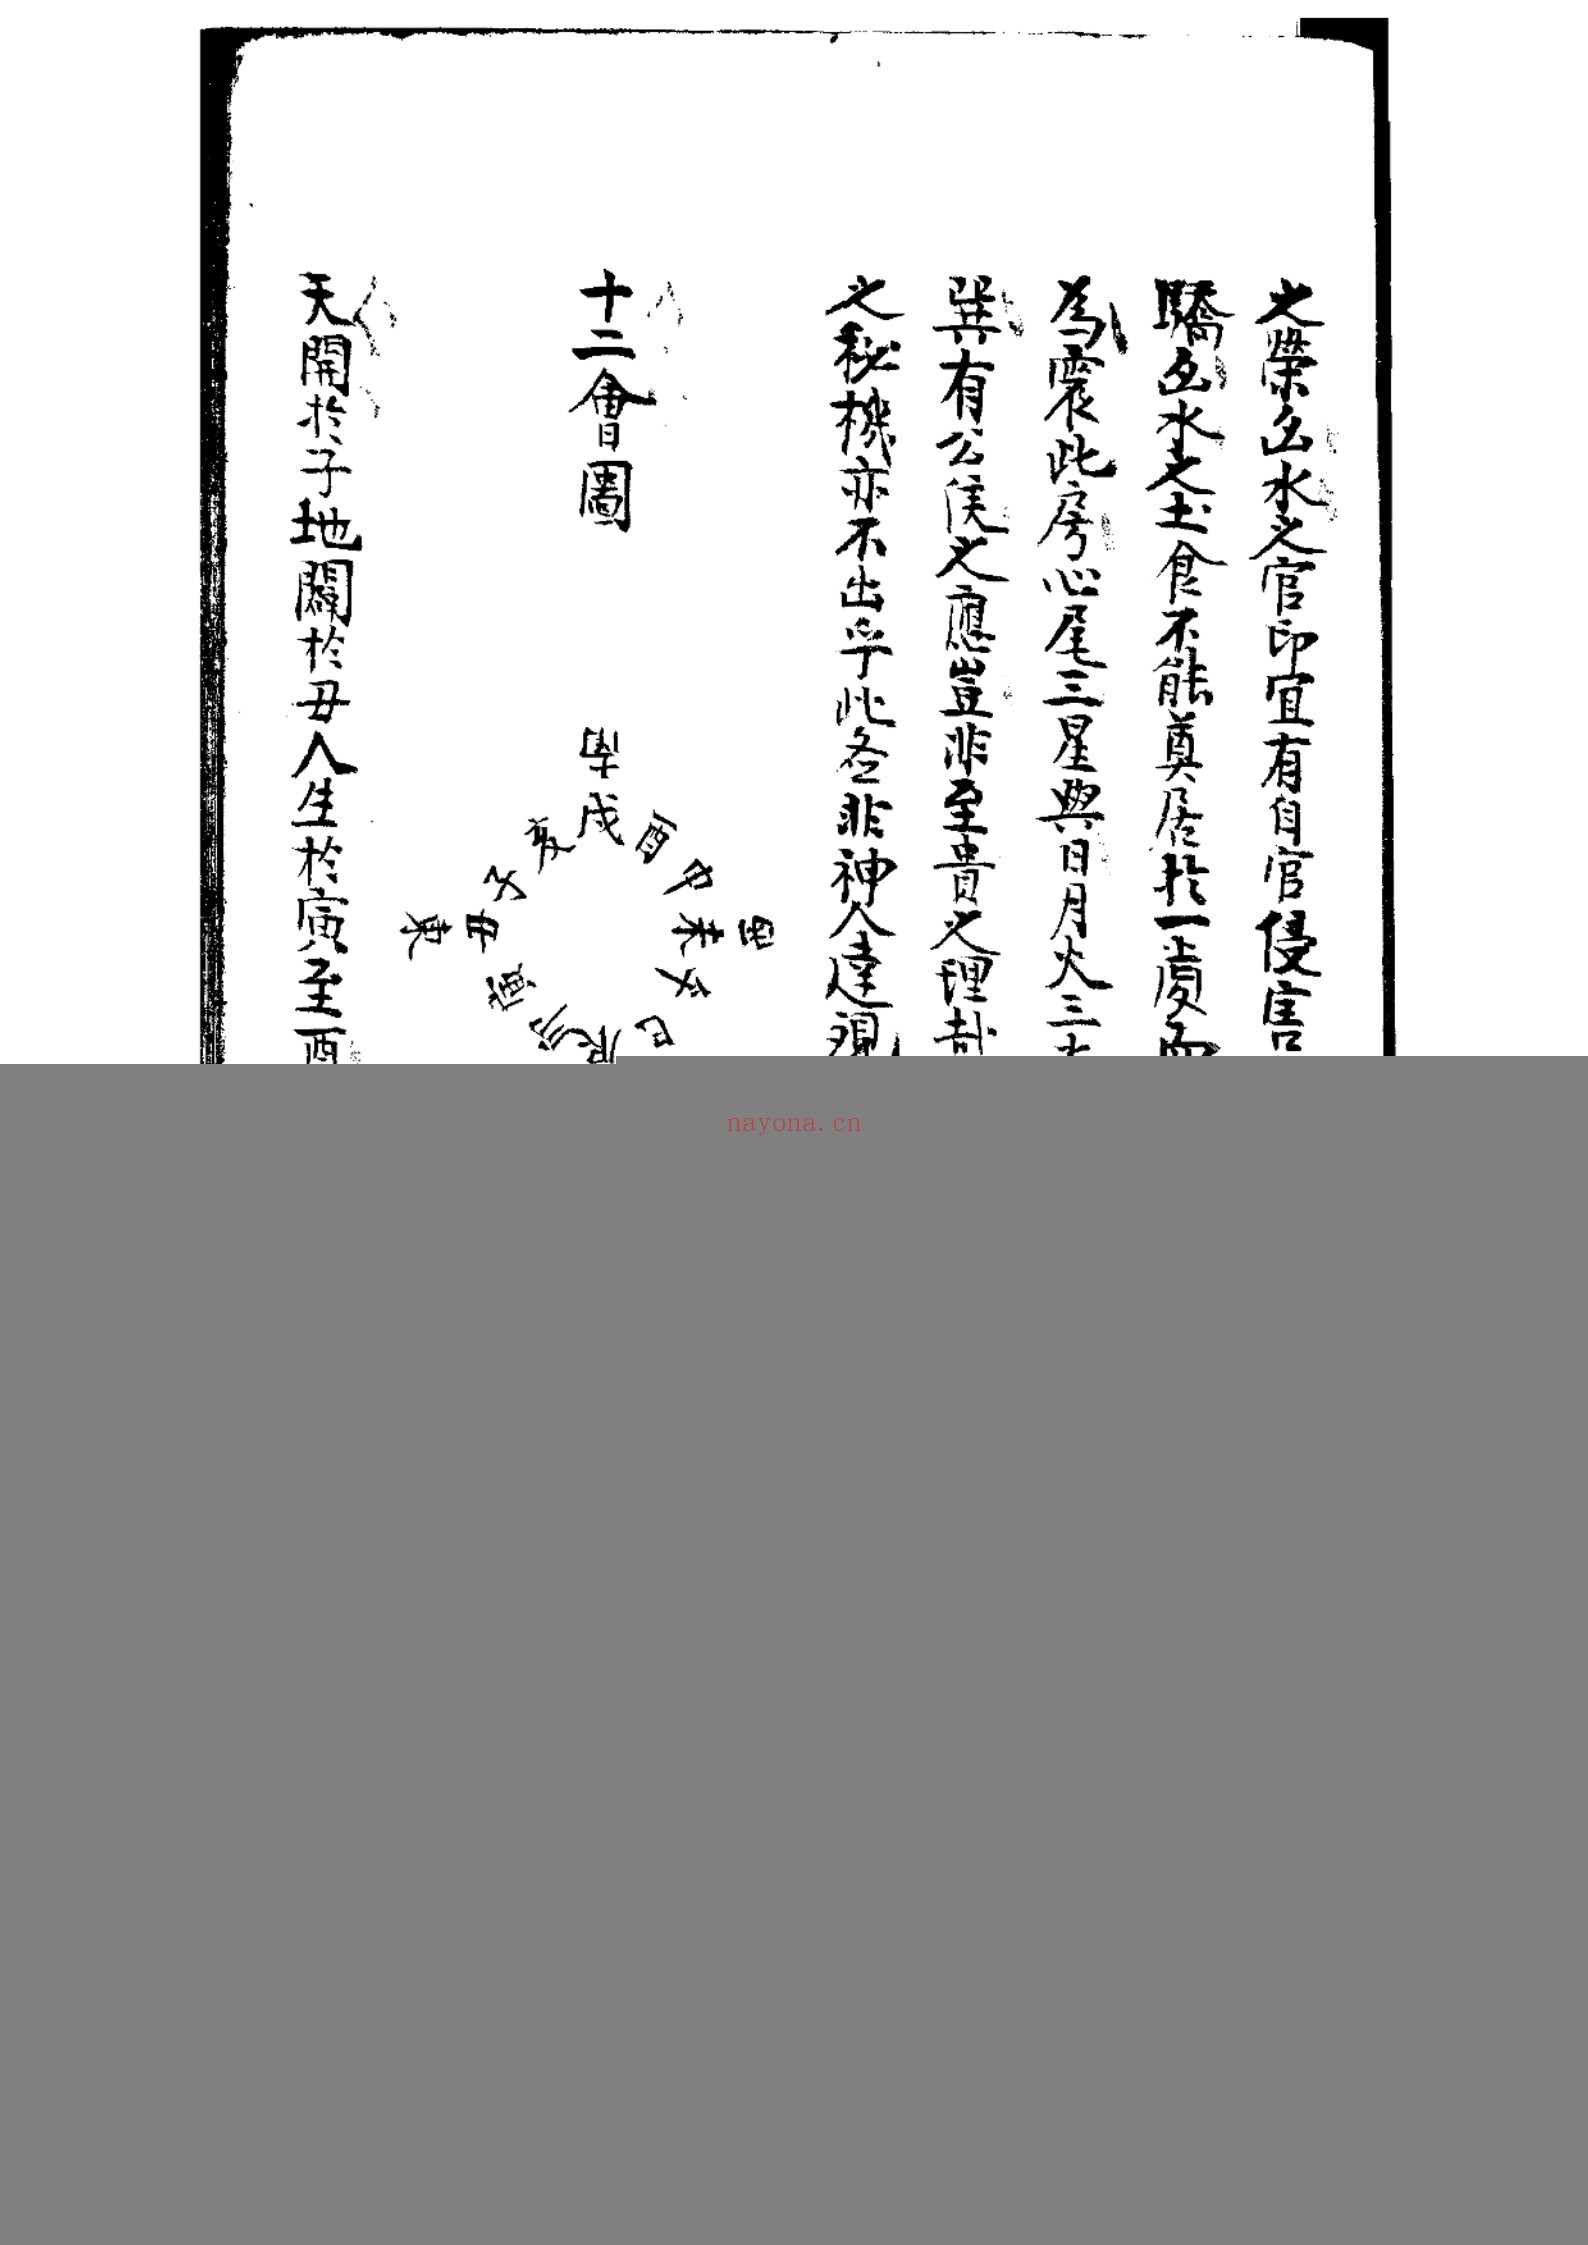 之榮㐫水之官印宜有自官侵害
驕㐫水之土食不能奠居於一處而
為震此房心尾三星與日月火三
巽有公侯之應豈非至貴之理哉
之秘機亦不出乎此名非神人達觀
十二會圖
戌
酉
申
未
午
巳
辰
卯
寅
丑
子
亥
西
東
天開於子地闢於丑人生於寅至酉
nayona.cn